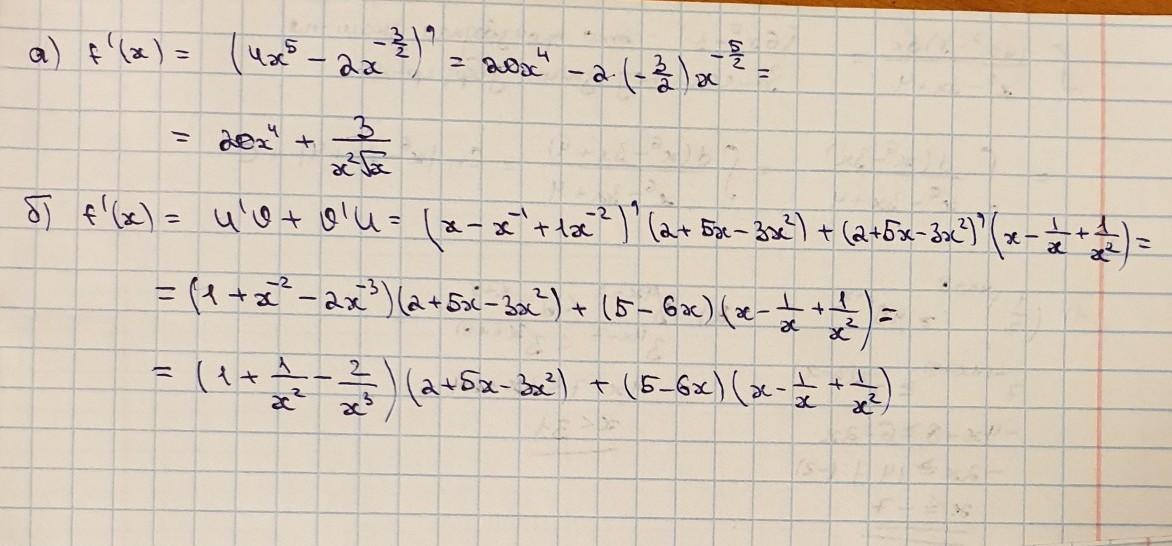 а) f'(x) = (4x⁵ − 2x^(−3/2))' = 20x⁴ − 2·(−3/2)x^(−5/2) =
= 20x⁴ + 3/(x²√x)
б) f'(x) = u'v + v'u = (x − x⁻¹ + 1x⁻²)'(2 + 5x − 3x²) + (2+5x−3x²)'(x − 1/x + 1/x²) =
= (1 + x⁻² − 2x⁻³)(2+5x−3x²) + (5−6x)(x − 1/x + 1/x²) =
= (1 + 1/x² − 2/x³)(2+5x−3x²) + (5−6x)(x − 1/x + 1/x²)